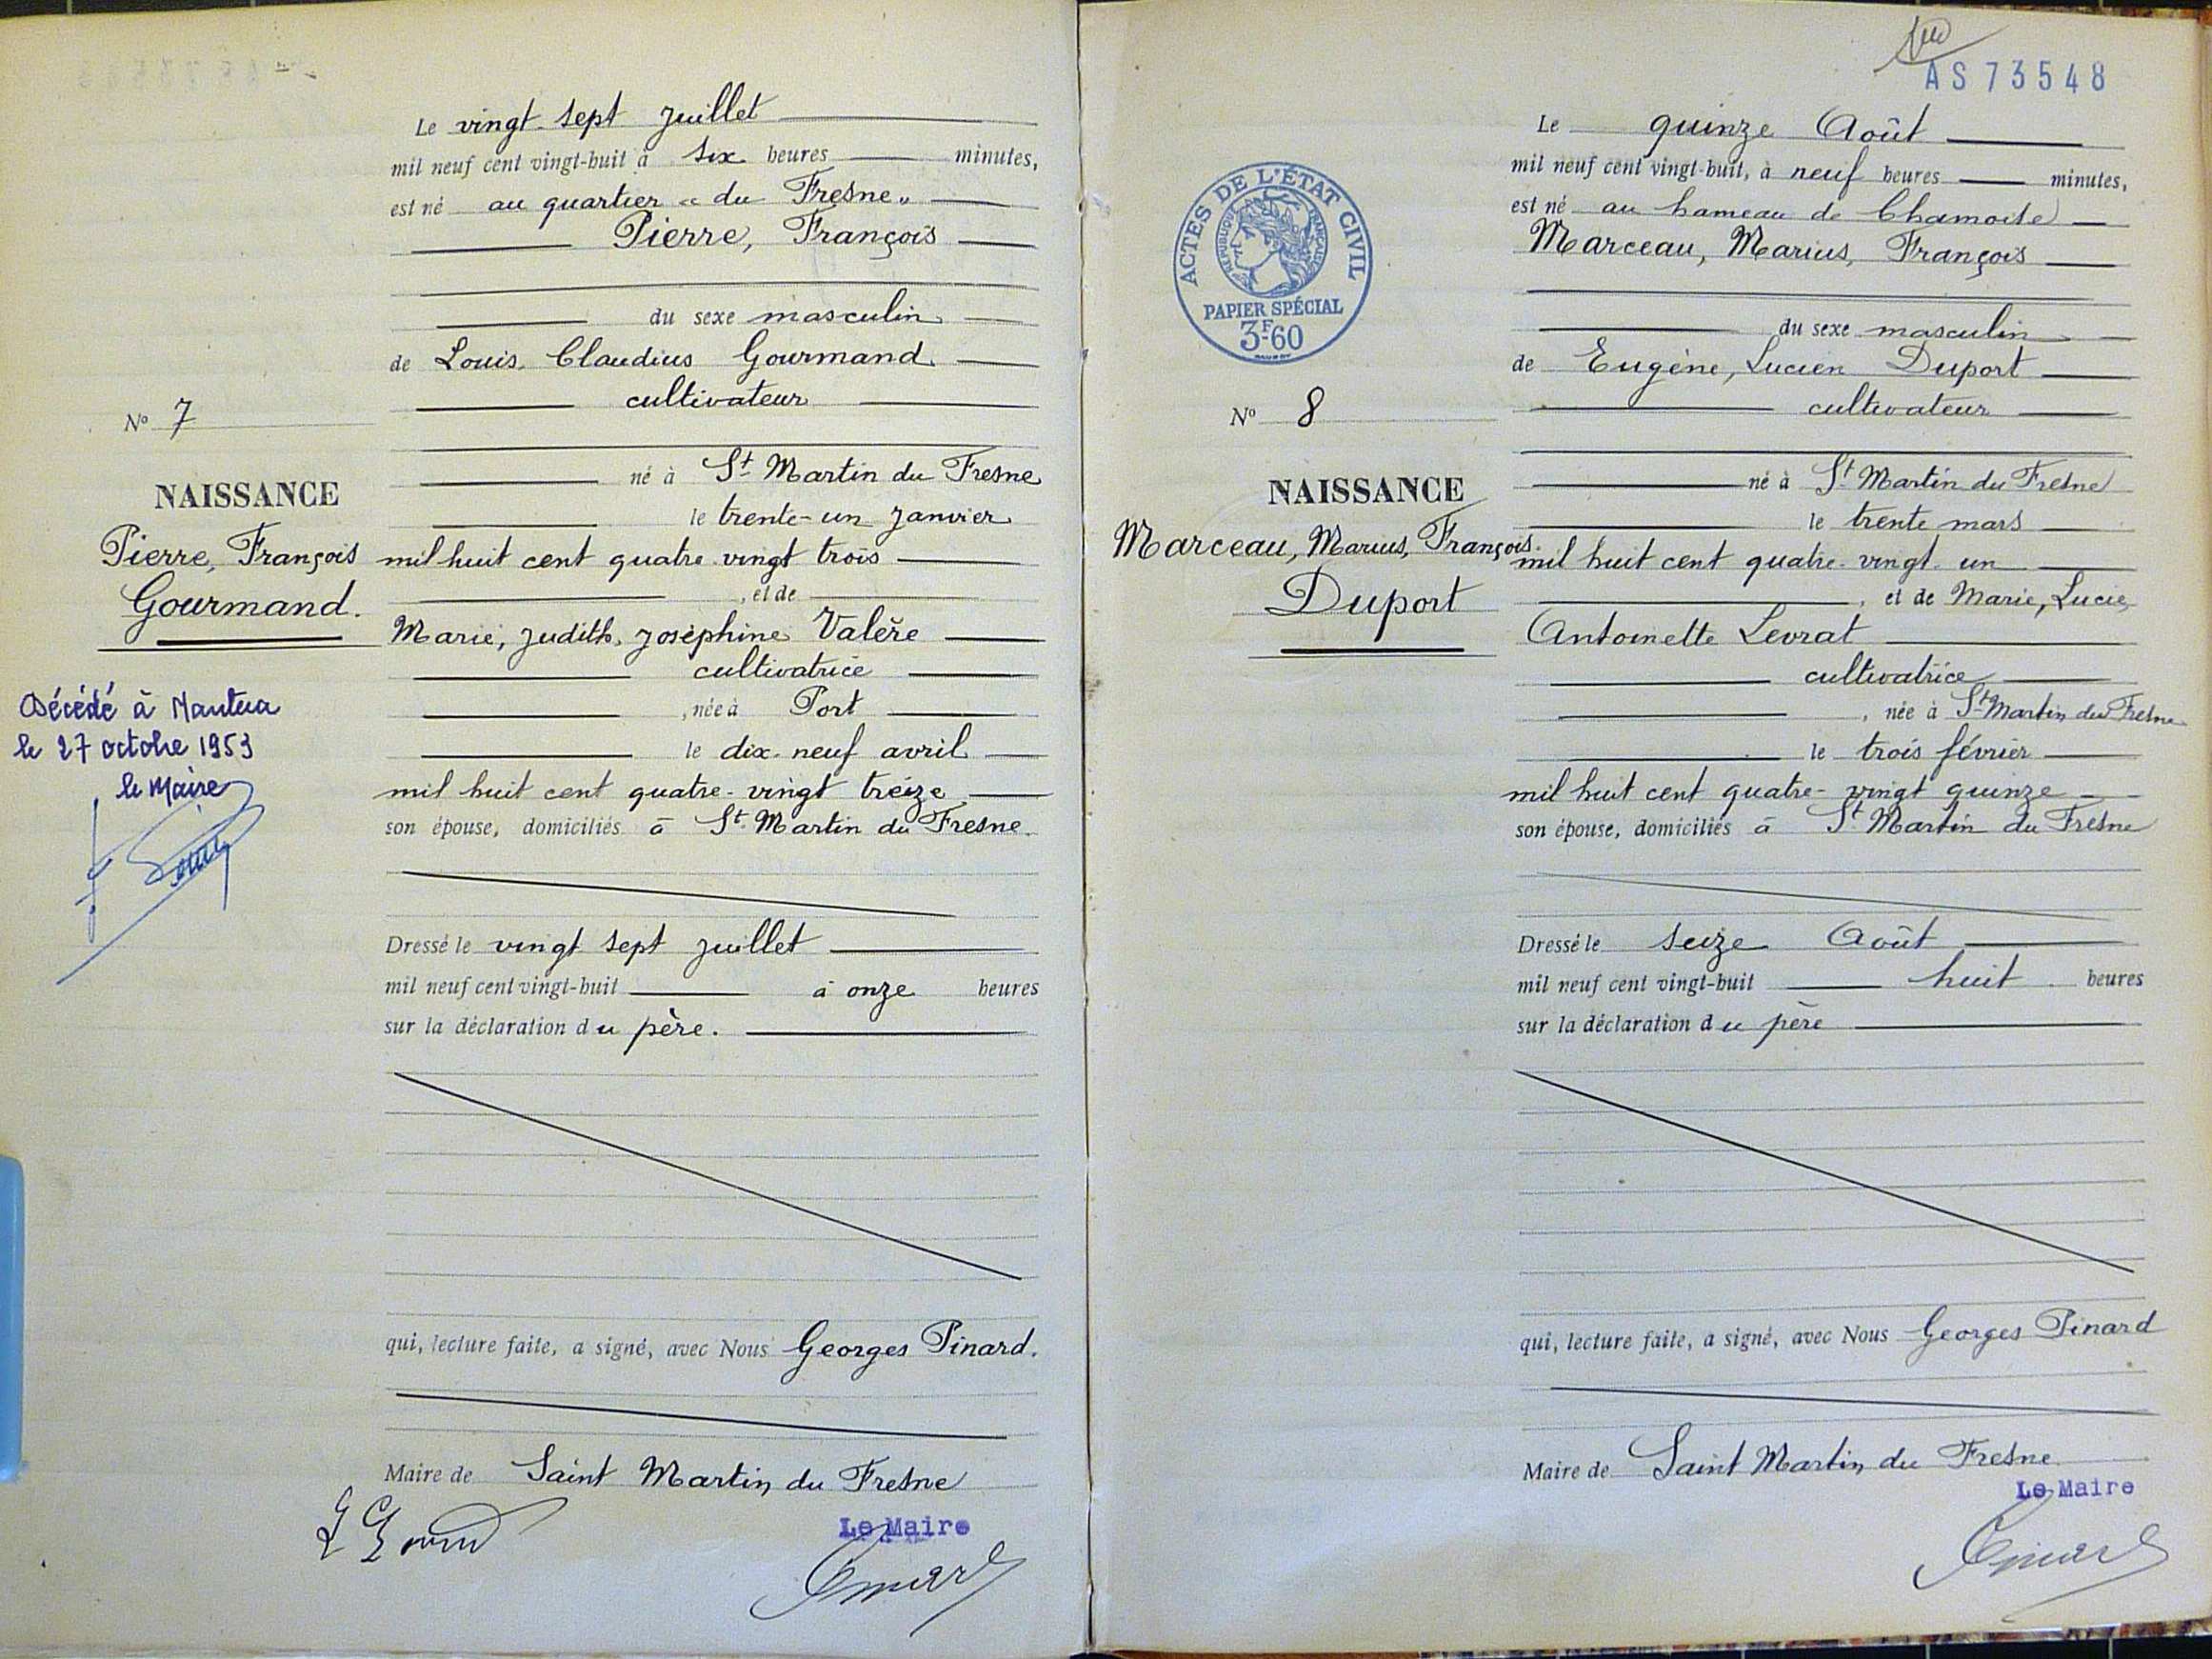 Le vingt-sept juillet
mil neuf cent vingt-huit à six heures minutes,
est né au quartier « du Fresne »
Pierre, François
du sexe masculin
de Louis, Claudius Gourmand
cultivateur
né à St Martin du Fresne
le trente-un janvier
mil huit cent quatre-vingt trois
, et de
Marie, Judith, Joséphine Valère
cultivatrice
, née à Port
le dix-neuf avril
mil huit cent quatre-vingt treize
son épouse, domiciliés à St Martin du Fresne.
Dressé le vingt sept juillet
mil neuf cent vingt-huit à onze heures
sur la déclaration du père.
qui, lecture faite, a signé, avec Nous Georges Pinard.
Maire de Saint Martin du Fresne
Le Maire
No 7
NAISSANCE
Pierre, François
Gourmand.
Décédé à Nantua
le 27 octobre 1953
le Maire
AS 73548
ACTES DE L'ÉTAT CIVIL
RÉPUBLIQUE FRANÇAISE
PAPIER SPÉCIAL
3F60
No 8
NAISSANCE
Marceau, Marius, François
Duport
Le quinze Août
mil neuf cent vingt-huit, à neuf heures minutes,
est né au hameau de Chamoise
Marceau, Marius, François
du sexe masculin
de Eugène, Lucien Duport
cultivateur
né à St Martin du Fresne
le trente mars
mil huit cent quatre-vingt-un
, et de Marie, Lucie,
Antoinette Levrat
cultivatrice
, née à St Martin du Fresne
le trois février
mil huit cent quatre-vingt quinze
son épouse, domiciliés à St Martin du Fresne
Dressé le seize Août
mil neuf cent vingt-huit huit heures
sur la déclaration du père
qui, lecture faite, a signé, avec Nous Georges Pinard
Maire de Saint Martin du Fresne
Le Maire